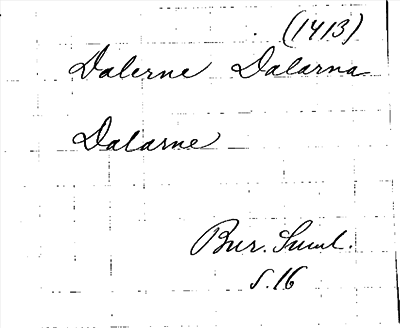 (1413)
Dalerne Dalarna
Dalarne
Bur. Suml.
s. 16